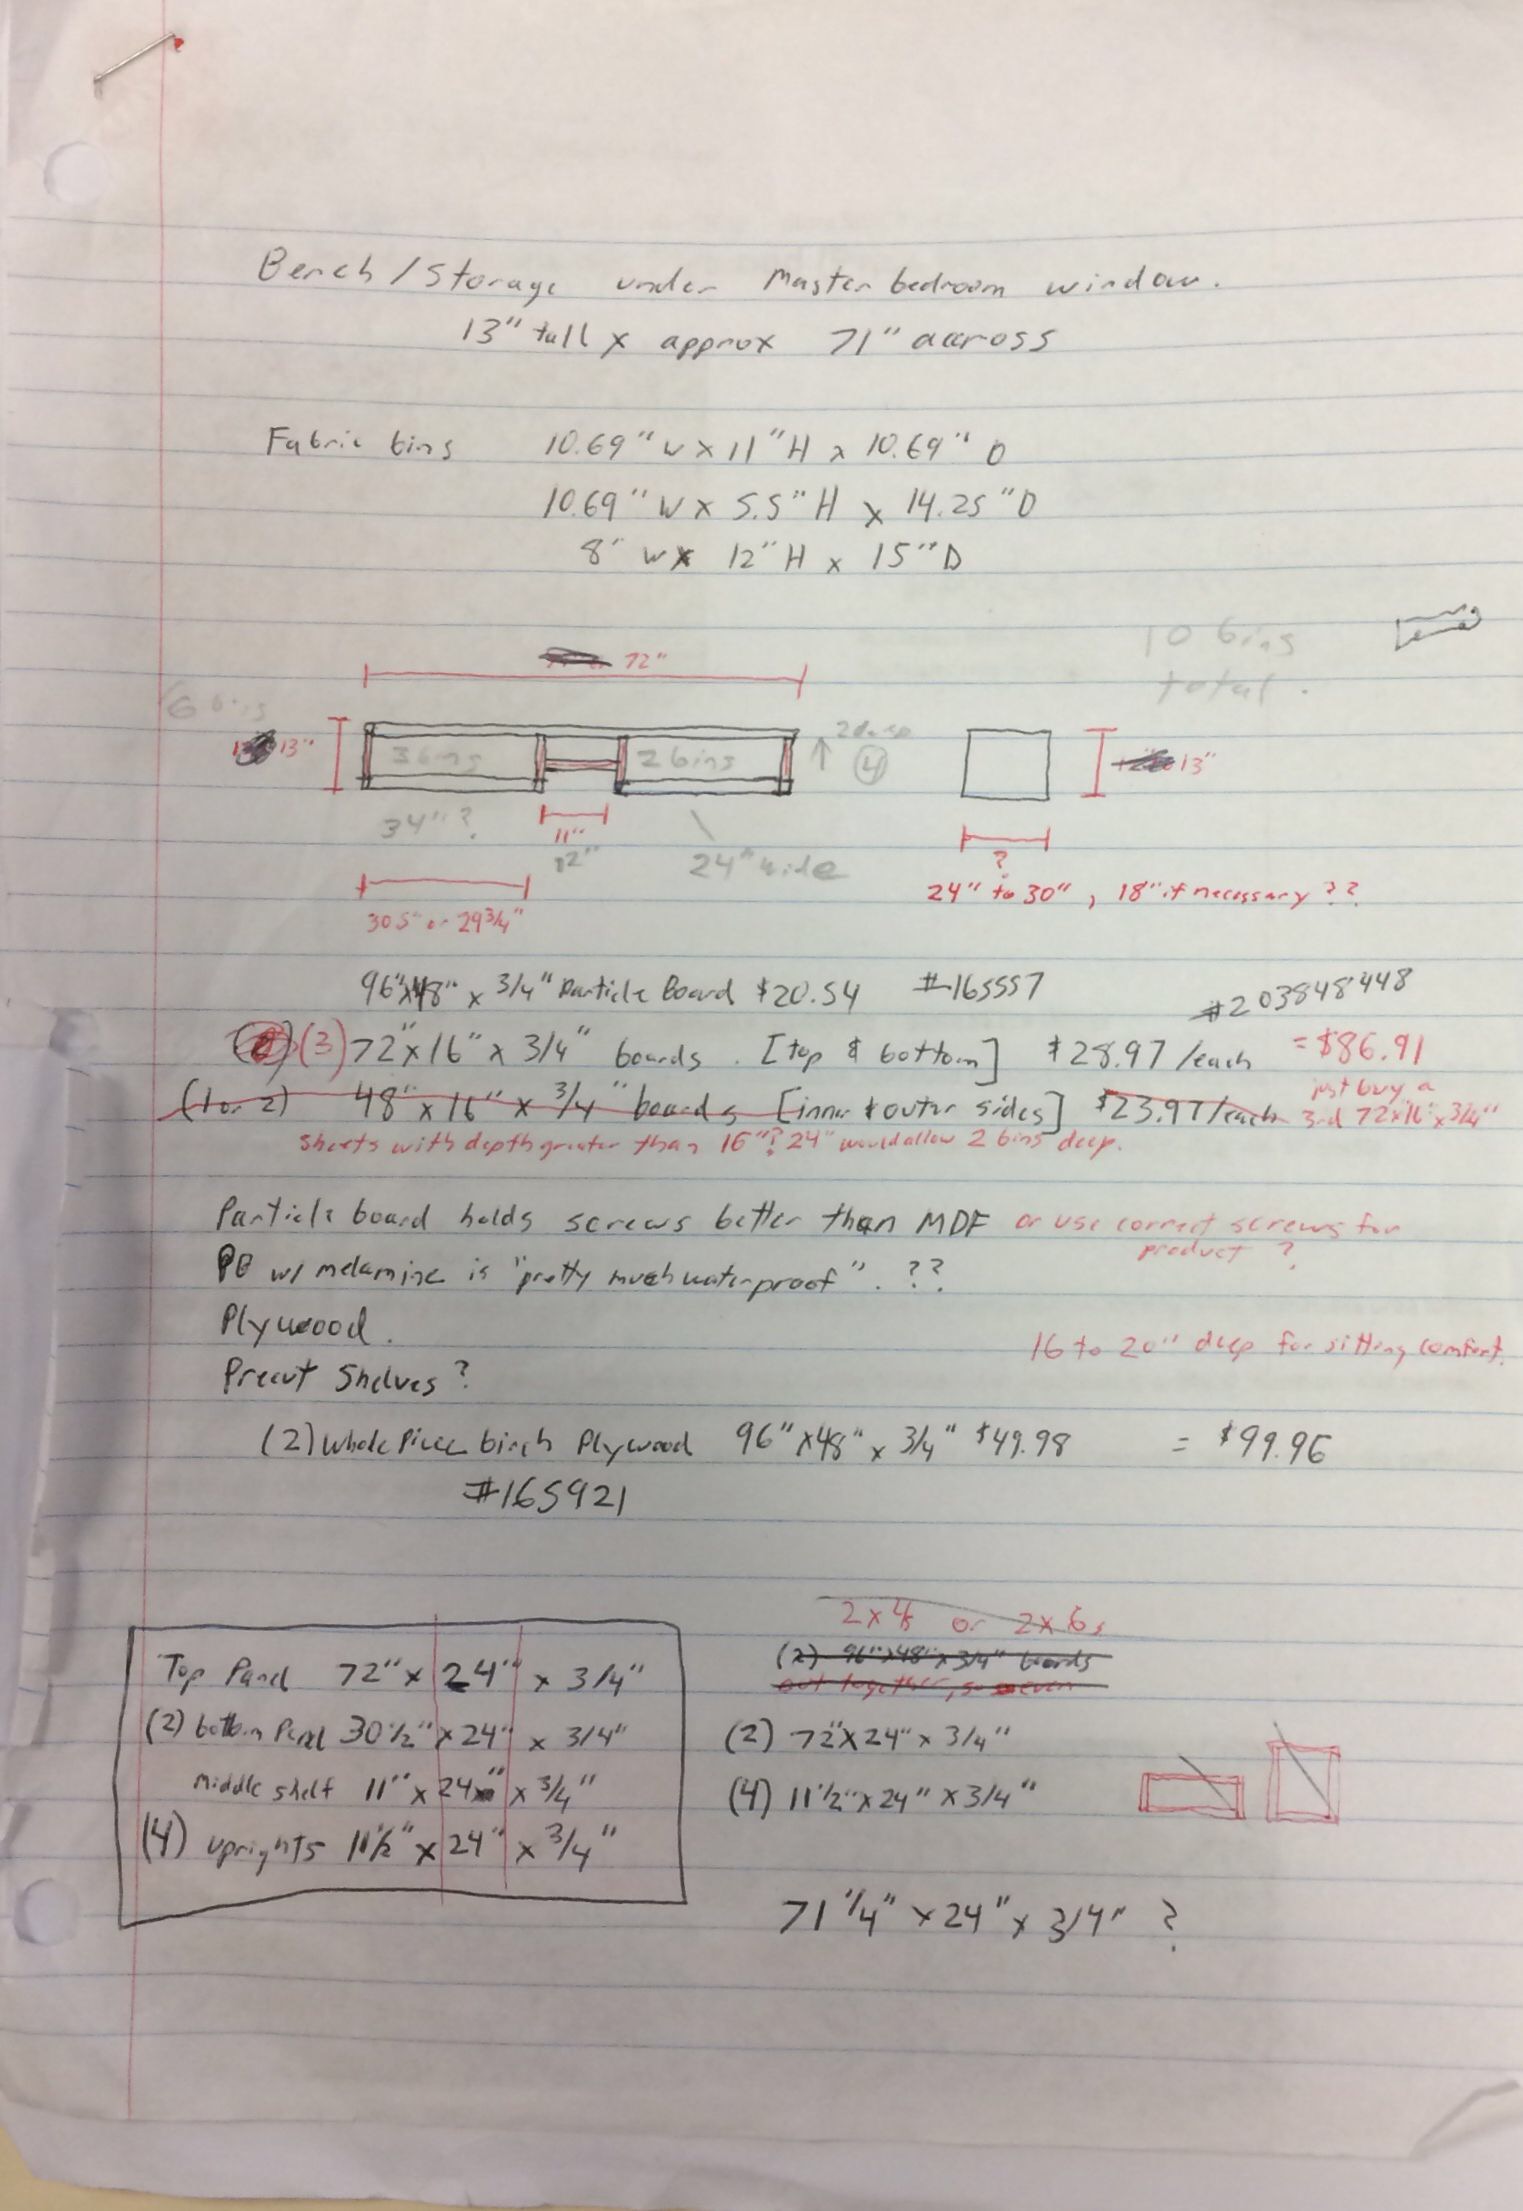 Bench/Storage under Master bedroom window.
13" tall x approx 71" accross
Fabric bins 10.69" W x 11" H x 10.69" D
10.69" W x 5.5" H x 14.25" D
8" W x 12" H x 15" D
10 bins
total.
72"
6 bins
13"
3 bins
2 bins
2 deep
4
13"
34"?
11"
12"
24" wide
?
24" to 30", 18" if necessary ??
30.5" or 29 3/4"
96"x48" x 3/4" Particle Board $20.54 #165557
#203848448
(3) 72" x 16" x 3/4" boards. [top & bottom] $28.97/each = $86.91
(1 or 2) 48" x 16" x 3/4" boards [inner & outer sides] $23.97/each
just buy a
3rd 72x16" x 3/4"
Sheets with depth greater than 16"? 24" would allow 2 bins deep.
Particle board holds screws better than MDF or use correct screws for
product?
PB w/ melamine is "pretty much waterproof". ??
Plywood.
16 to 20" deep for sitting comfort.
Precut Shelves?
(2) Whole Piece birch Plywood 96" x 48" x 3/4" $49.98 = $99.96
#165921
2x4s or 2x6s
(2) 96" x 48" x 3/4" boards
cut together, so even
Top Panel 72" x 24" x 3/4"
(2) bottom Panel 30 1/2" x 24" x 3/4"
Middle shelf 11" x 24" x 3/4"
(4) uprights 11 1/2" x 24" x 3/4"
(2) 72" x 24" x 3/4"
(4) 11 1/2" x 24" x 3/4"
71 1/4" x 24" x 3/4" ?